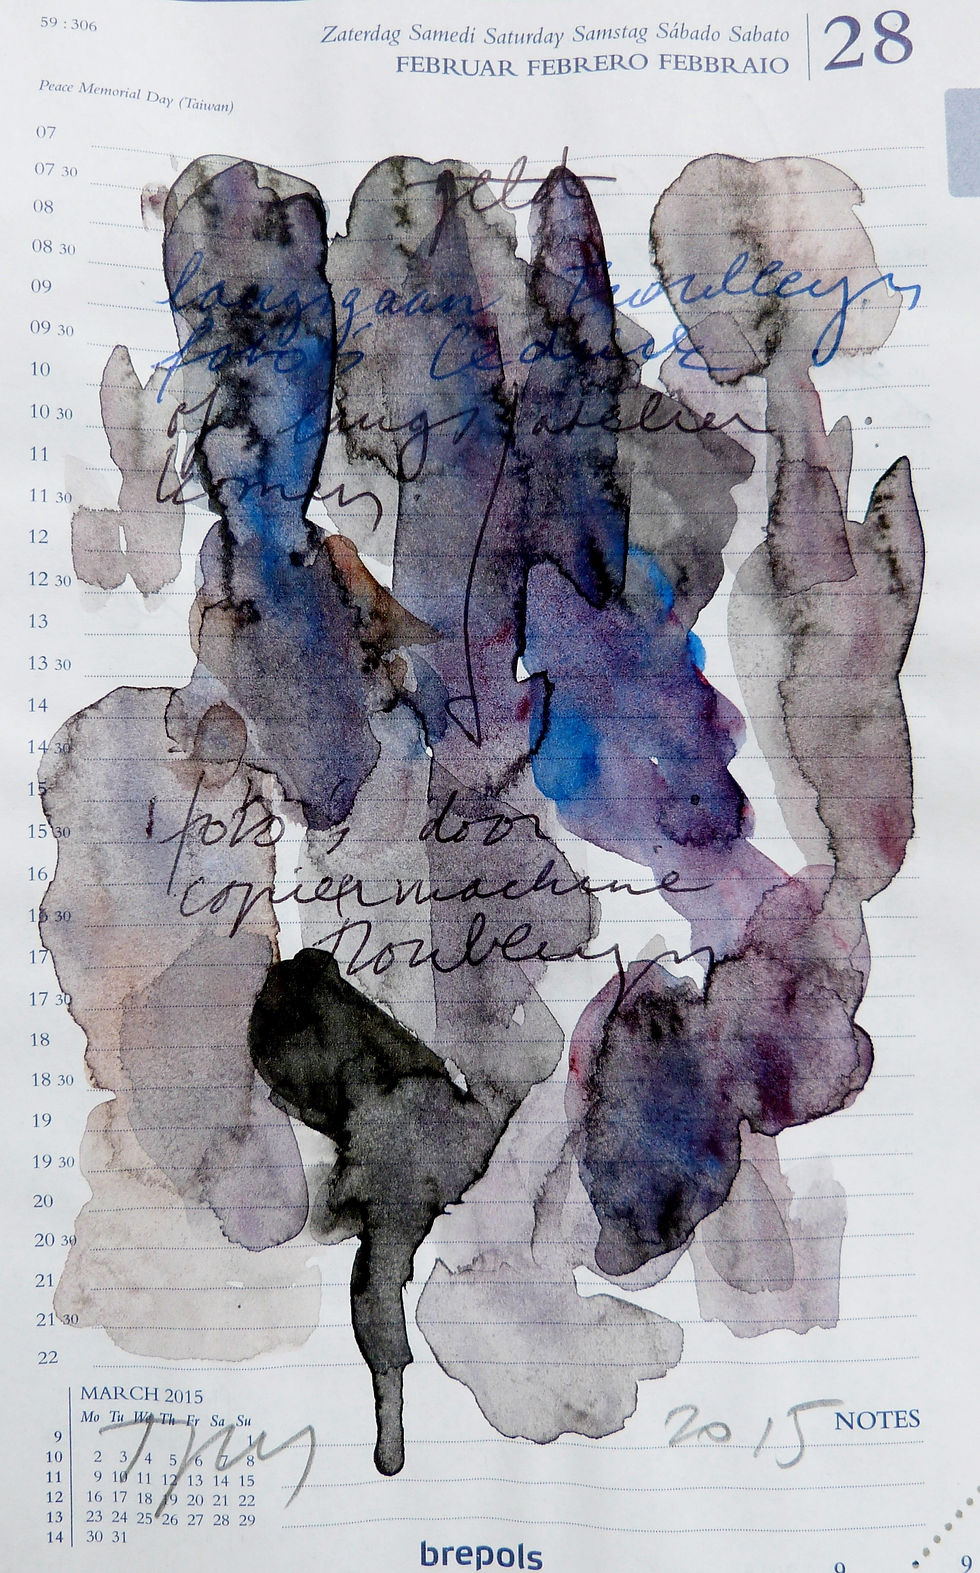 59 : 306
Zaterdag Samedi Saturday Samstag Sábado Sabato
FEBRUAR FEBRERO FEBBRAIO
28
Peace Memorial Day (Taiwan)
07
07 30
08
08 30
09
langsgaan
09 30
foto's Cedrick
10
of langs atelier
10 30
11
11 30
12
12 30
13
13 30
14
14 30
15
foto's door
15 30
16
copiermachine
16 30
17
17 30
18
18 30
19
19 30
20
20 30
21
21 30
22
MARCH 2015
Mo Tu We Th Fr Sa Su
9 1
10 2 3 4 5 6 7 8
11 9 10 11 12 13 14 15
12 16 17 18 19 20 21 22
13 23 24 25 26 27 28 29
14 30 31
2015
NOTES
brepols
9 9